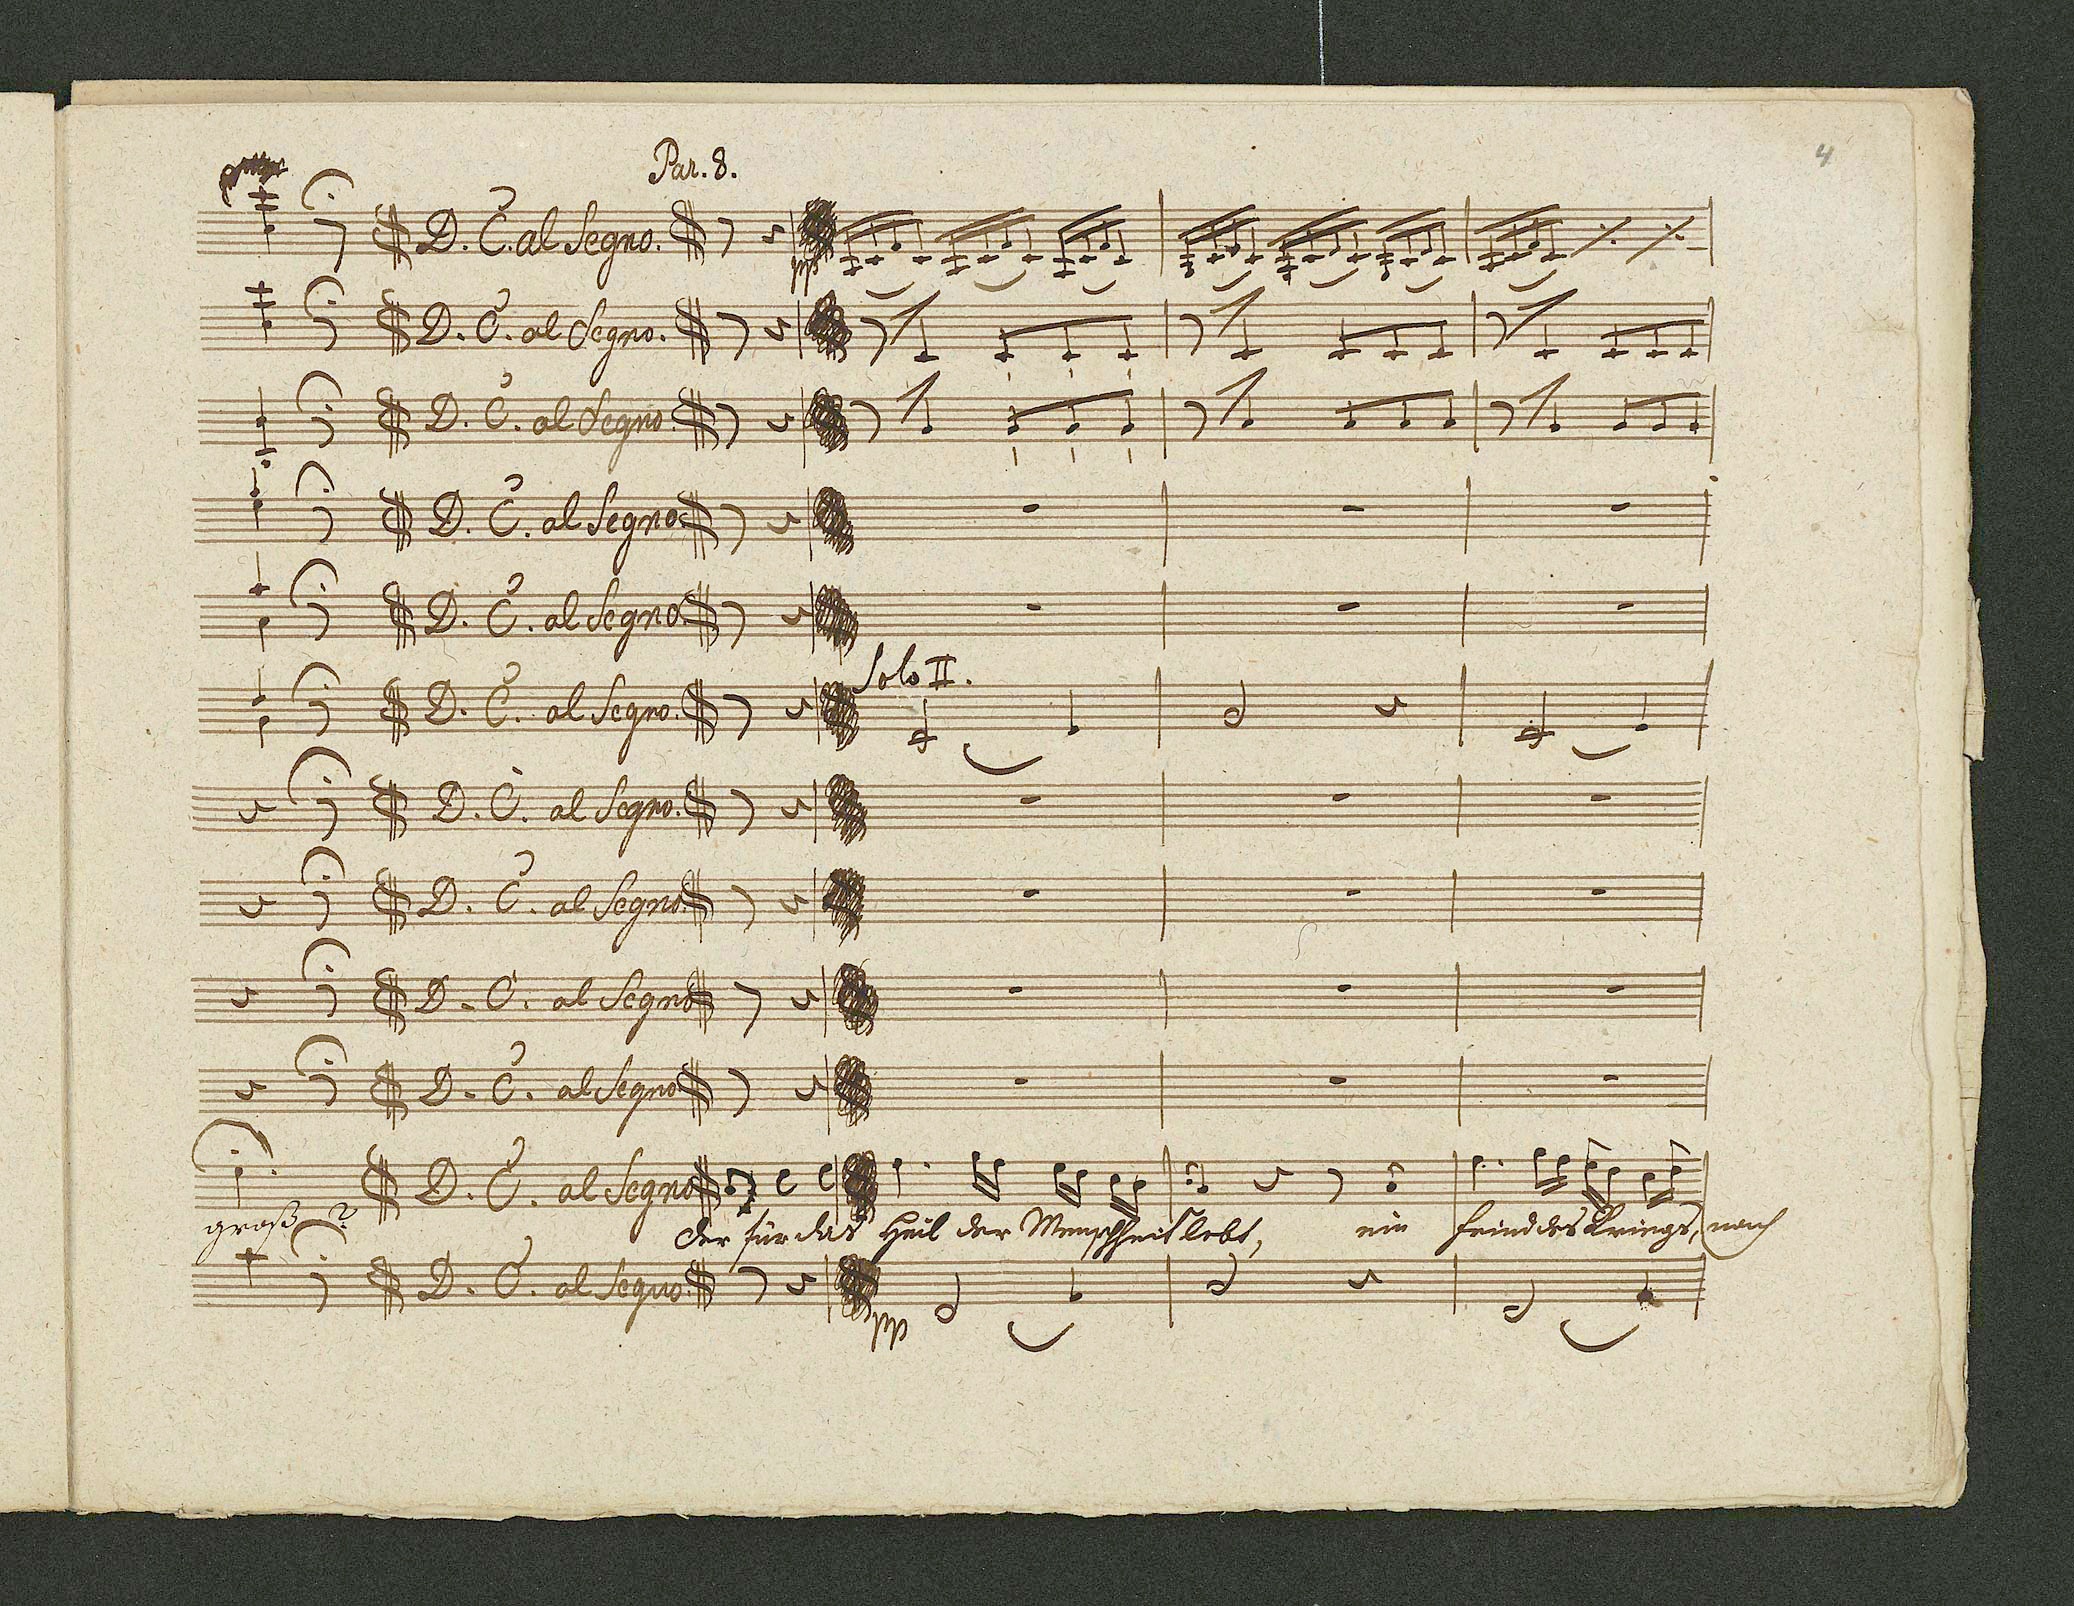 4
Par. 8.
D. C. al Segno.
pp
D. C. al Segno.
D. C. al Segno.
D. C. al Segno.
D. C. al Segno.
Solo II.
D. C. al Segno.
D. C. al Segno.
D. C. al Segno.
D. C. al Segno
D. C. al Segno
D. C. al Segno
groß ? der für das Heil der Menschheit lebt, ein Feind des Kriegs, nach
D. C. al Segno.
pp